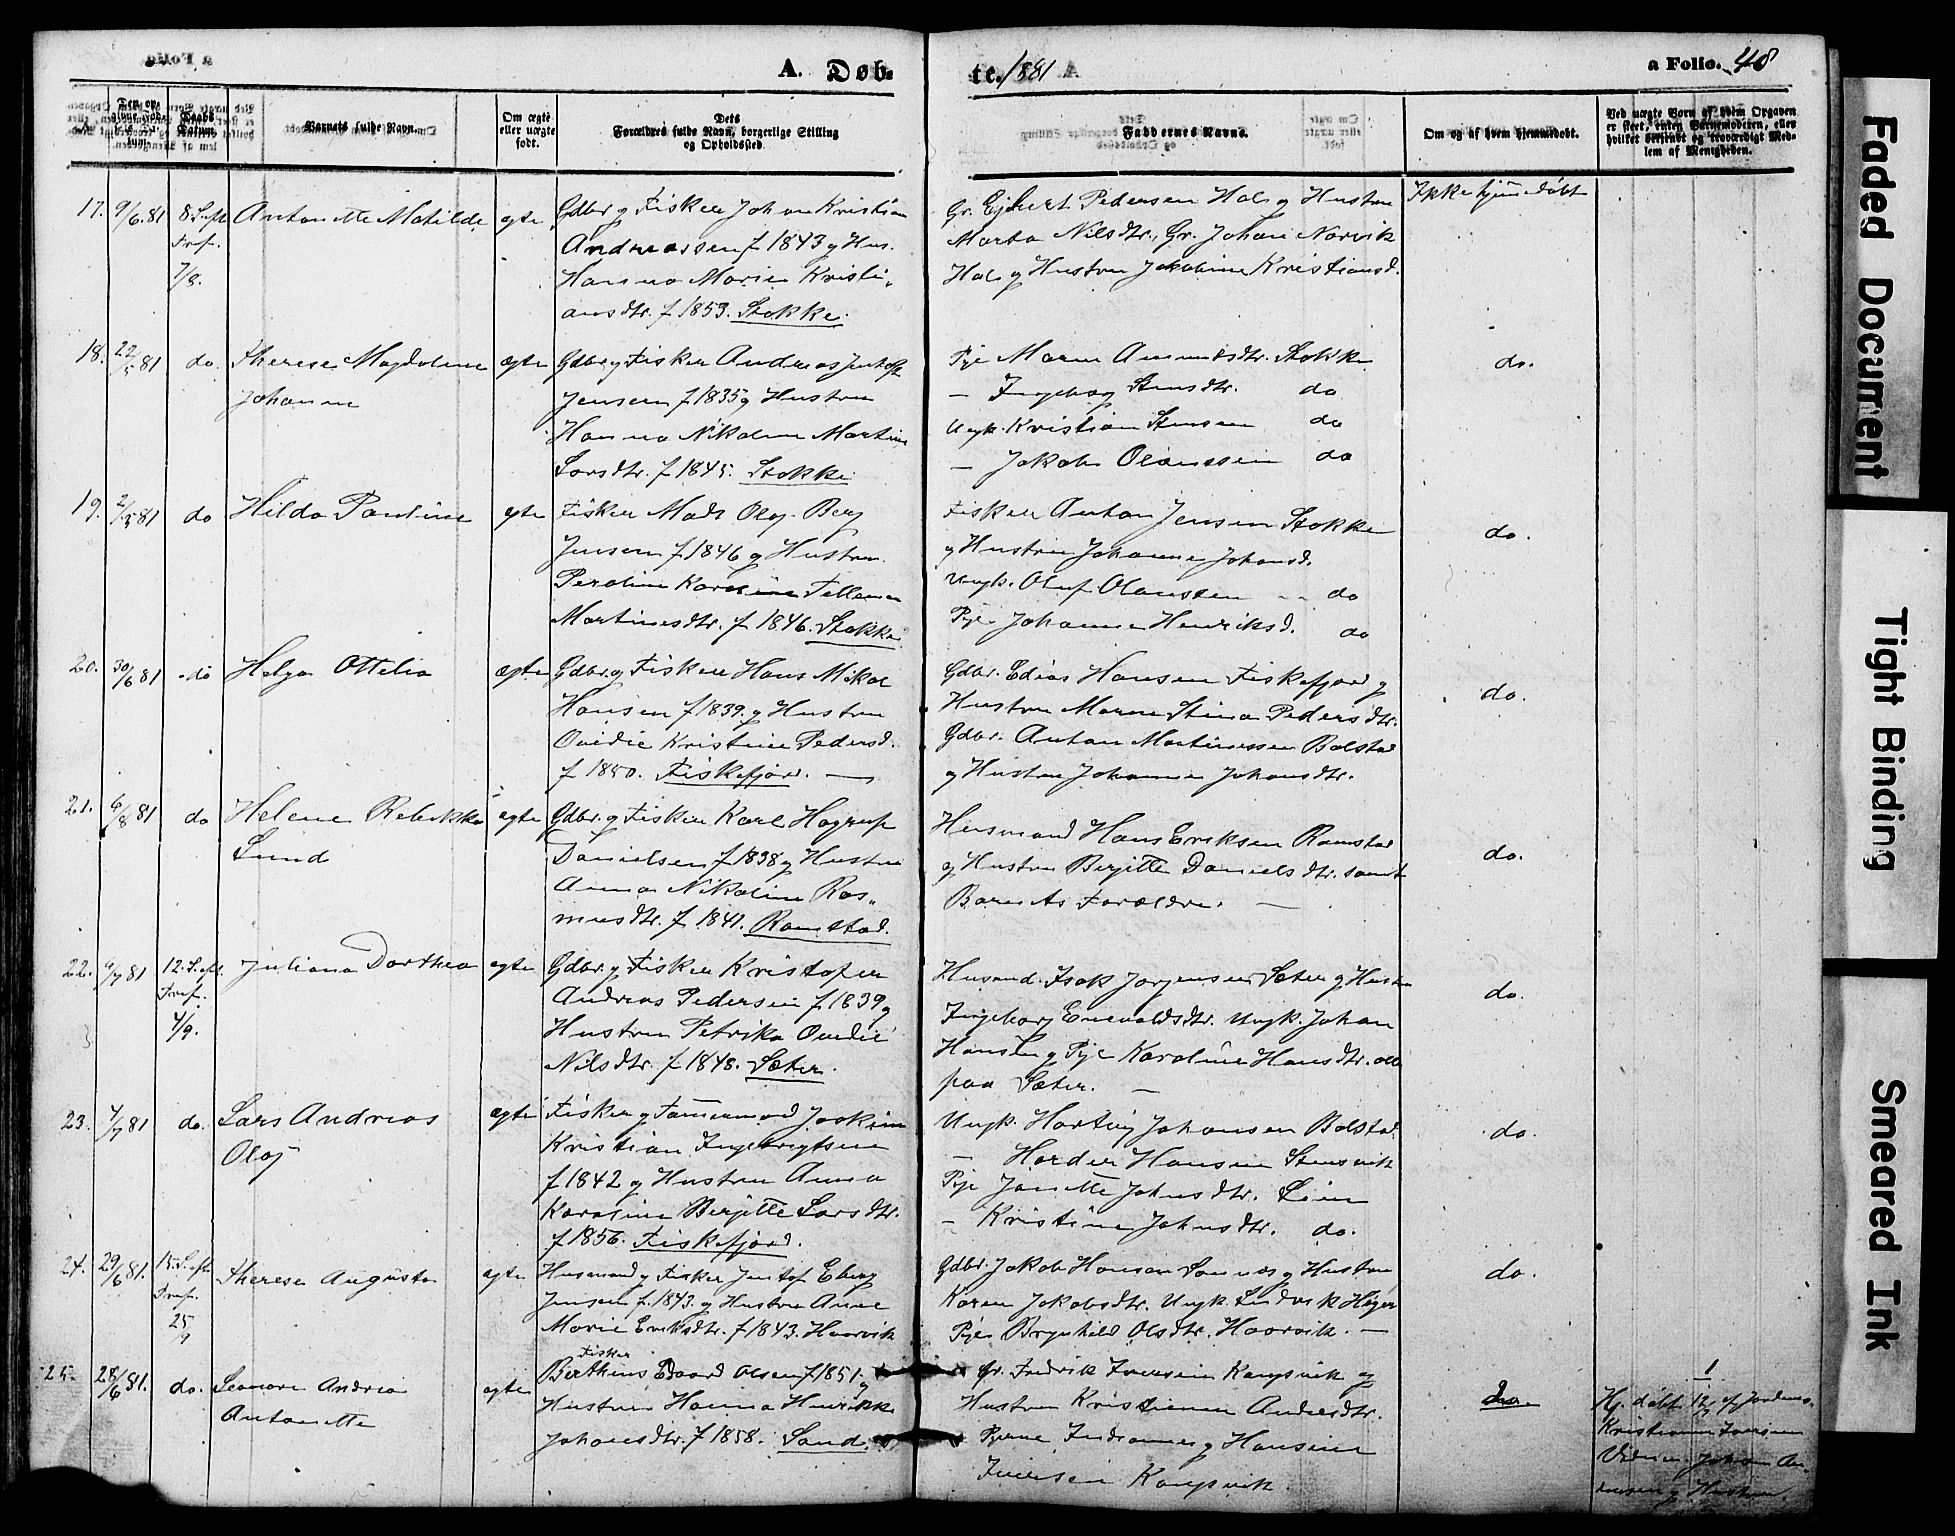 A. Døb-
te. 1881
a Folio. 48
Barnets fulde Navn.
Om ægte
eller uægte
født.
Dets
Forældres fulde Navn, borgerlige Stilling
og Opholdssted.
Faddernes Navne.
Om og af hvem hjemmedøbt.
Ved uægte Børn af hvem Opgaven
er skeet, enten Barnemoderen, eller
hvilket bekjendt og troværdigt Med-
lem af Menigheden.
17. 9/6.81 8 Septr Antonette Matilde ægte Gdbr. og Fisker Johan Kristian
Andreassen f 1843 og Hus.
7/8. Hanna Marie Kristi-
ansdtr. f 1853. Stokke.
Gr. Ejbert Pedersen Hals og Hustru
Marta Nilsdtr., Gr. Johan Norvik
Hals og Hustru Jakobine Kristiansd.
Ikke hjemmedøbt
18. 22/5 81 do. Therese Magdalene ægte Gdbr. og Fisker Andreas Jentoft
Johanne Jensen f 1835 og Hustru
Hanna Nikoline Martine
Larsdtr. f 1845. Stokke
Pige Maren Amundsdtr. Stokke
— Ingeborg Stensdtr. do
Ungk. Kristian Stensen do
— Jakob Olaussen do
do.
19. 2/5 81 do Hilda Pauline ægte Fisker Mads Olaj Berg
Jensen f 1846 og Hustru
Martinesdtr. f 1846. Stokke
Fisker Anton Jensen Stokke
og Hustru Johanna Johansd.
Ungk. Oluf Olaussen do
Pige Johanna Henriksd. do
do.
20. 30/6 81 do Helga Ottelia ægte Gdbr. og Fisker Hans Mikal
Hansen f 1839. og Hustru
Ovedie Kristine Pedersd.
f 1850. Fiskefjord. —
Gdbr. Edias Hansen Fiskefjord og
Hustru Maren Stina Pedersdtr.
Gdbr. Anton Martinussen Bolstad
og Hustru Johanna Johansdtr.
do.
21. 6/8 81 do Helene Rebekka ægte Gdbr. og Fisker Karl Hagrup
Lund Danielsen f 1838 og Hustru
Anna Nikoline Ras-
musdtr. f 1841. Ramstad.
Husmand Hans Eriksen Ramstad
og Hustru Berjitte Danielsdtr. samt
Barnets Forældre. —
do.
22. 6/7 81 12. Septr. Juliana Dorthea ægte Gdbr. og Fisker Kristofer
Andreas Pedersen f 1839 og
4/9. Hustru Petrika Ovedie
Nilsdtr. f 1848. Sæter.
Husmd. Isak Jørgensen Sæter og Hustru
Ingeborg Enevoldsdtr. Ungk. Johan
Hansen og Pige Karoline Hansdtr. alle
paa Sæter. —
do.
23. 4/7 81 do. Lars Andreas ægte Fisker og Tømmermand Joakim
Olaj Kristian Ingebrigtsen
f 1842 og Hustru Anna
Karoline Berjitte Larsdtr.
f 1856. Fiskefjord.
Ungk. Hartvig Johansen Bolstad.
— Hansen Stensvik
Pige Janette Johnsdtr.
— Kristine Johnsdtr. do.
do.
24. 29/6 81. 15. Septr. Therese Augusta ægte Husmand og Fisker Jentof Eberg
Jensen f. 1843. og Hustru Anne
25/9 Marie Eriksdtr. f 1843. Haarvik
Gdbr. Jakob Hansen Sannæs og Hustru
Karen Jakobsdtr. Ungk. Ludvik
Pige Brynhild Olsdtr. Haarvik. —
do.
Fisker
25. 28/6 81. do. Leonore Andrea ægte Berthinus Edvard Olsen f 1851. og
Antonette Hustru Hanna Henrikke
Johansdtr. f 1858. Sand.
Gr. Fredrik Iversen Kongsvik og
Hustru Andersdtr.
Hansine
Iversen Kongsvik.
do.
Hj. døbt af
Johan An-
og Hustru.
Faded Document
Tight Binding
Smeared Ink